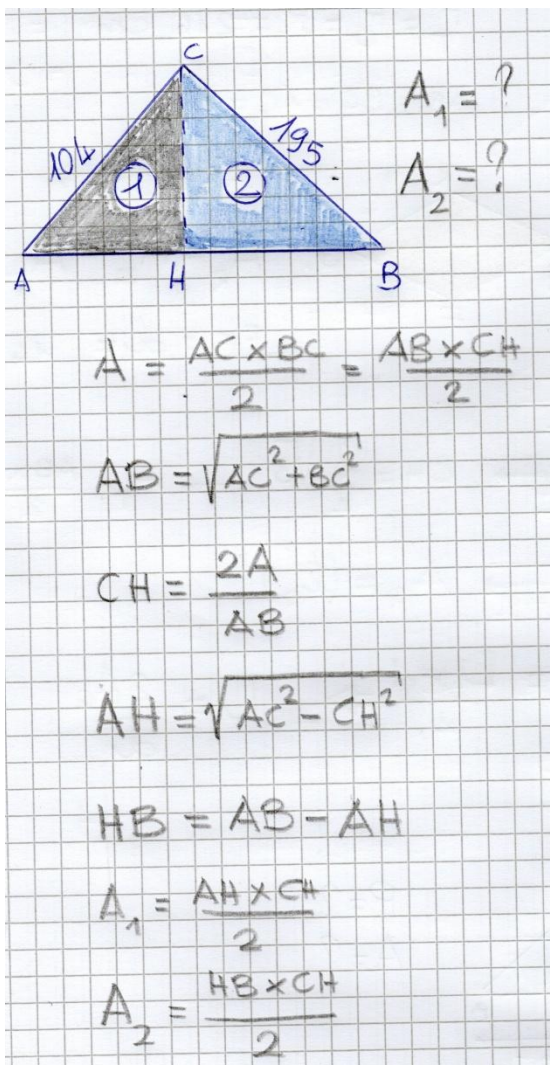 C
104
195
1
2
A
H
B
A₁ = ?
A₂ = ?
A = AC × BC / 2 = AB × CH / 2
AB = √(AC² + BC²)
CH = 2A / AB
AH = √(AC² − CH²)
HB = AB − AH
A₁ = AH × CH / 2
A₂ = HB × CH / 2